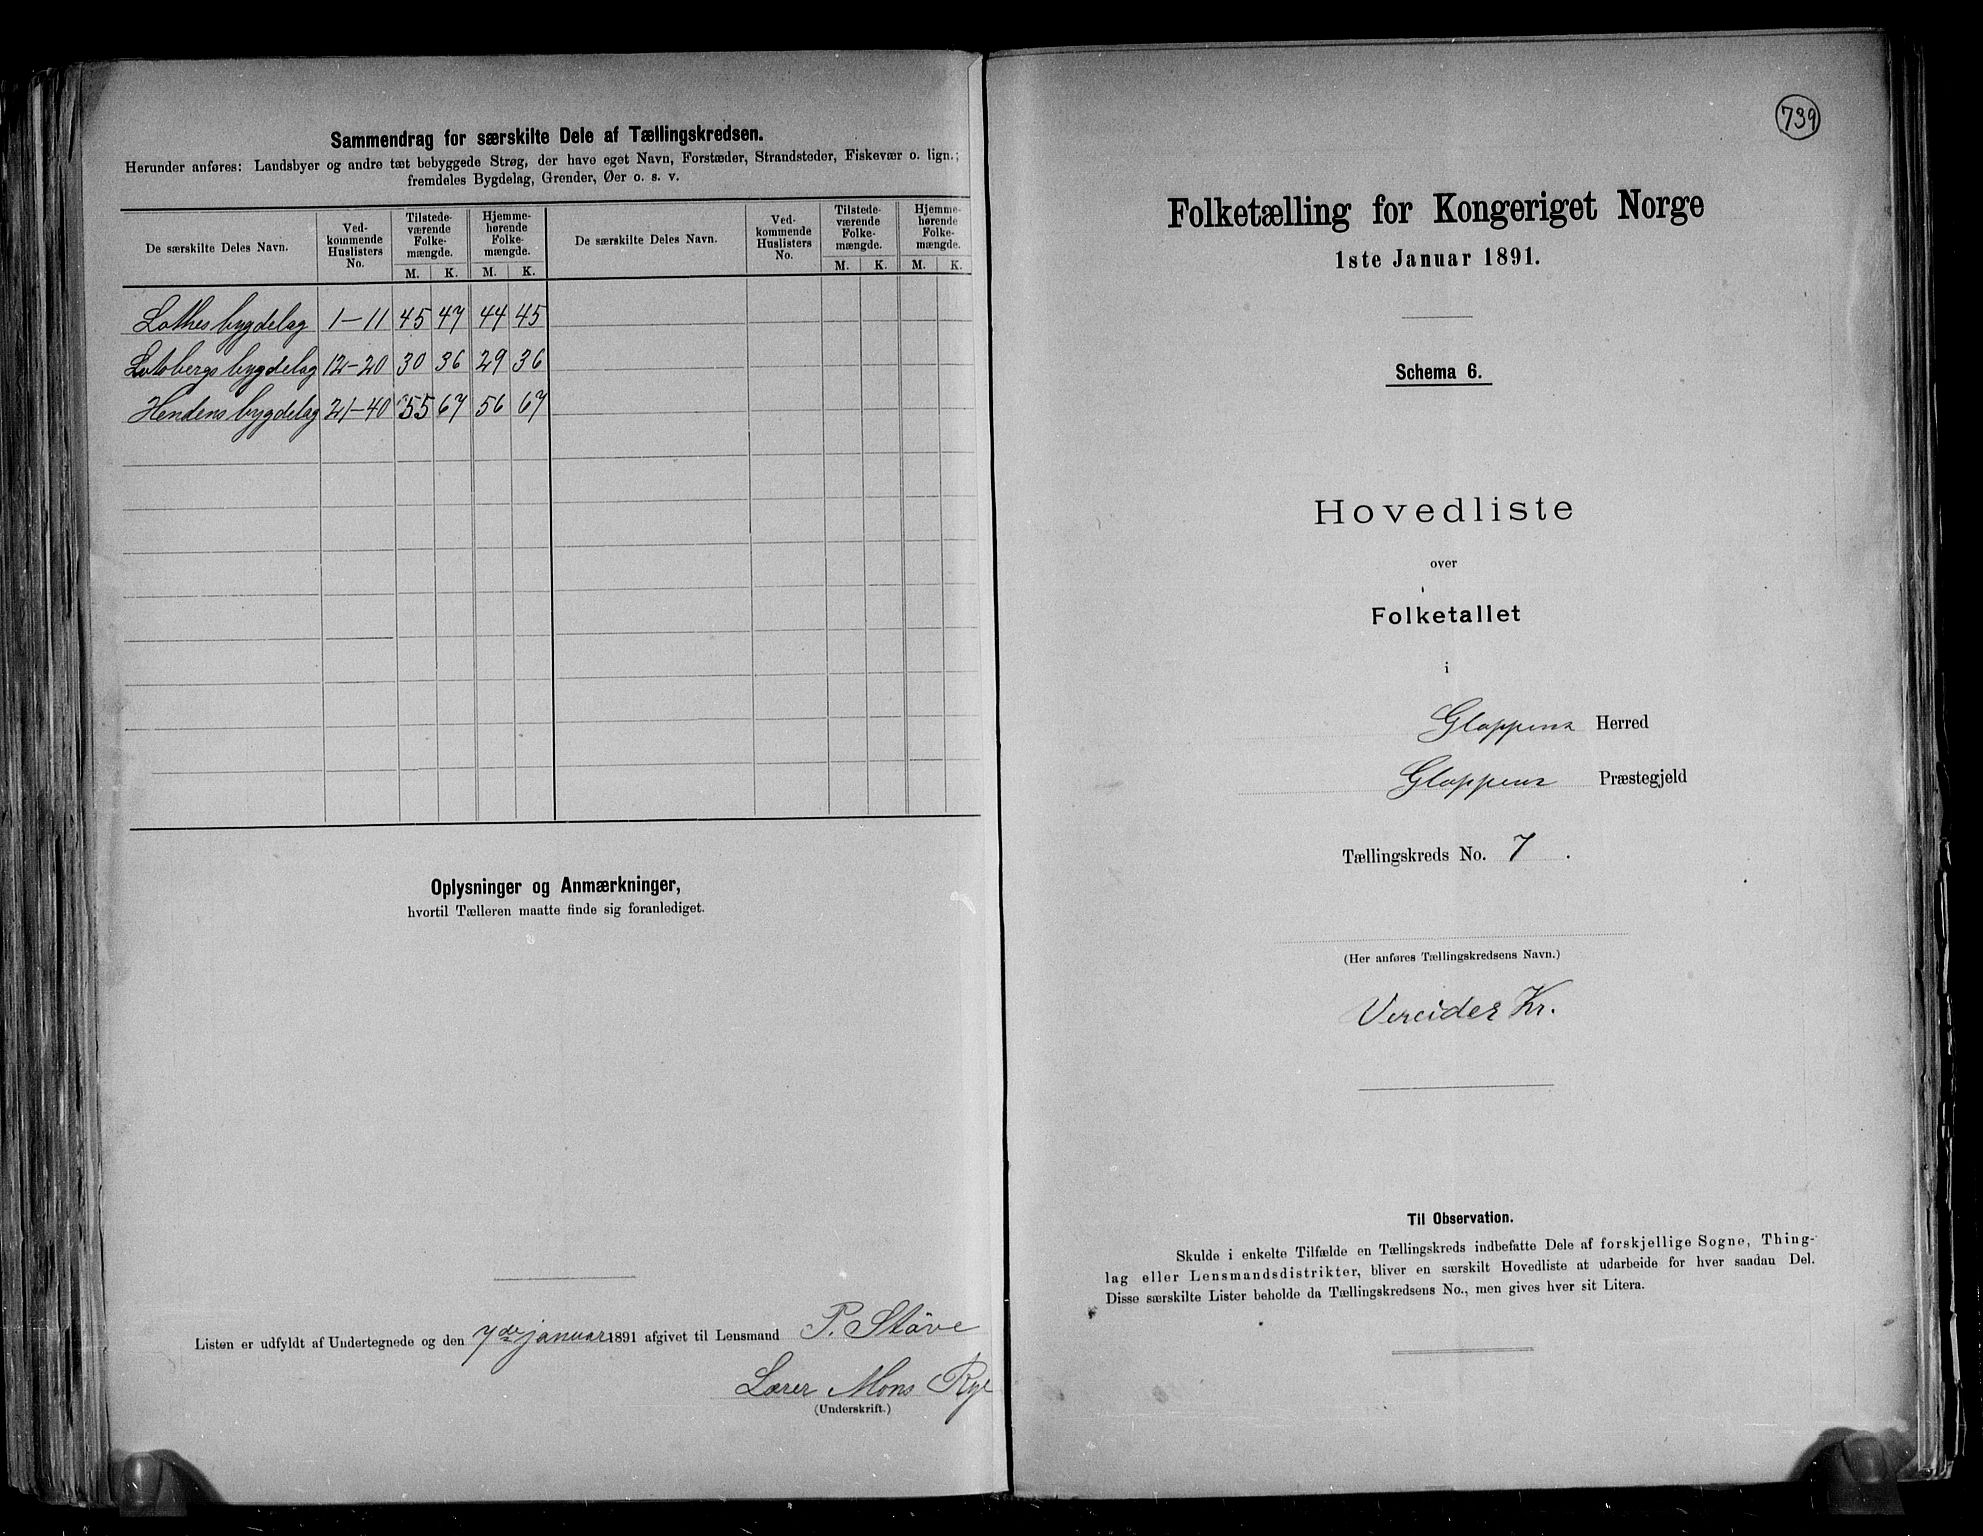 Sammendrag for særskilte Dele af Tællingskredsen.
Herunder anføres: Landsbyer og andre tæt bebyggede Strøg, der have eget Navn, Forstæder, Strandsteder, Fiskevær o. lign.;
fremdeles Bygdelag, Grender, Øer o. s. v.
De særskilte Deles Navn. Ved-kommende Huslisters No. Tilstede-værende Folke-mængde. Hjemme-hørende Folke-mængde. De særskilte Deles Navn. Ved-kommende Huslisters No. Tilstede-værende Folke-mængde. Hjemme-hørende Folke-mængde.
M. K. M. K. M. K. M. K.
Lothes bygdelag 1-11 45 47 44 45
bygdelag 12-20 30 36 29 36
Hendens bygdelag 21-40 55 67 56 67
Oplysninger og Anmærkninger,
hvortil Tælleren maatte finde sig foranlediget.
Listen er udfyldt af Undertegnede og den 7de januar 1891 afgivet til Lensmand P. Støve
Lærer Mons Rye
(Underskrift.)
739
Folketælling for Kongeriget Norge
1ste Januar 1891.
Schema 6.
Hovedliste
over
Folketallet
i
Gloppens Herred
Gloppens Præstegjeld
Tællingskreds No. 7.
(Her anføres Tællingskredsens Navn.)
Vereides Kr.
Til Observation.
Skulde i enkelte Tilfælde en Tællingskreds indbefatte Dele af forskjellige Sogne, Thing-
lag eller Lensmandsdistrikter, bliver en særskilt Hovedliste at udarbeide for hver saadan Del.
Disse særskilte Lister beholde da Tællingskredsens No., men gives hver sit Litera.